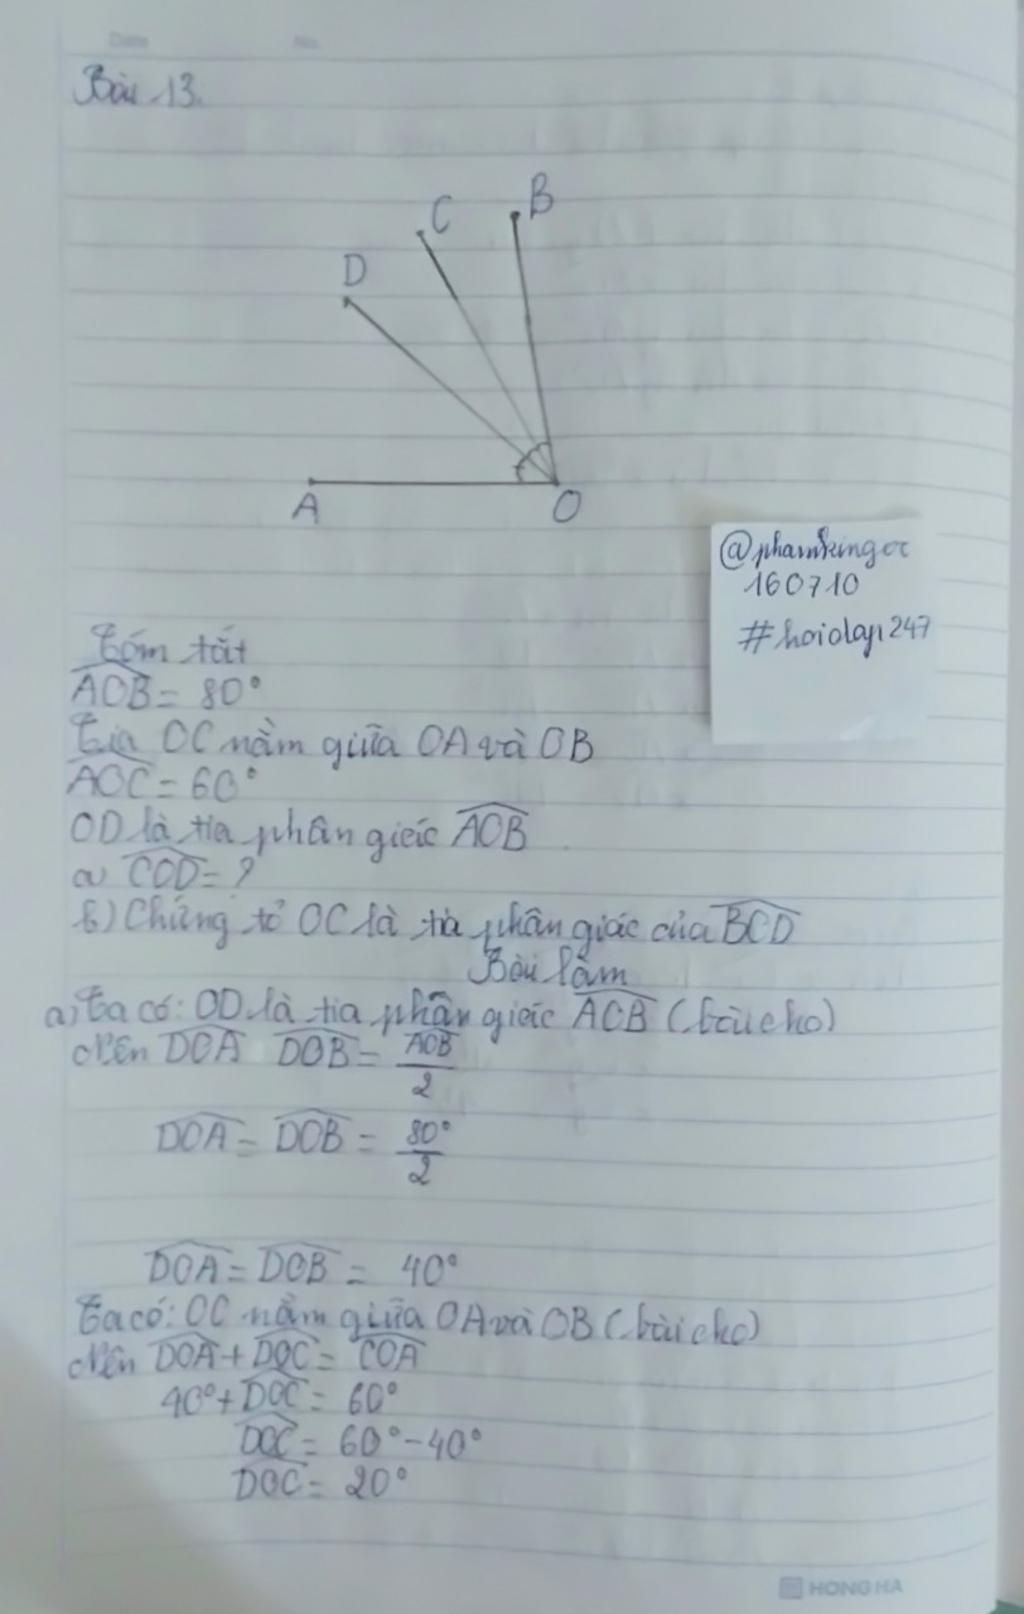 Date No.
Bài 13.
B
C
D
A
O
@phamkinger
160710
#hoidap247
Tóm tắt
AOB = 80°
Tia OC nằm giữa OA và OB
AOC = 60°
OD là tia phân giác AOB
a) COD = ?
b) Chứng tỏ OC là tia phân giác của BOD
Bài làm
a) Ta có: OD là tia phân giác AOB (bài cho)
Nên DOA DOB = AOB/2
DOA = DOB = 80°/2
DOA = DOB = 40°
Ta có: OC nằm giữa OA và OB (bài cho)
Nên DOA + DOC = COA
40° + DOC = 60°
DOC = 60° - 40°
DOC = 20°
HONG HA